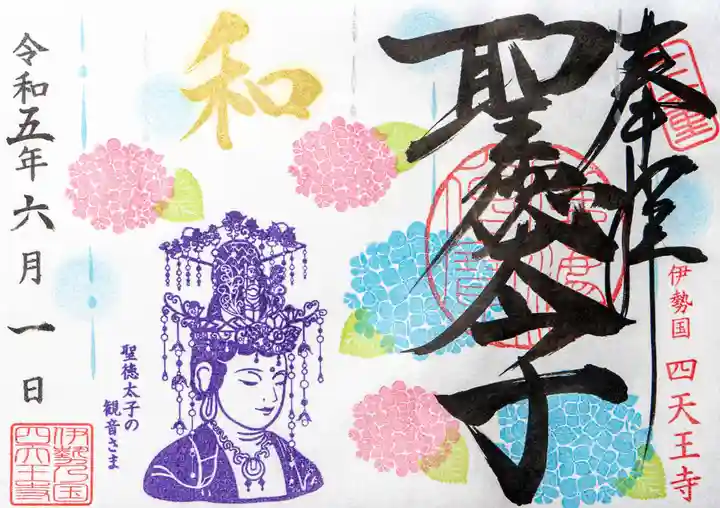 奉拝
聖徳太子
伊勢国 四天王寺
和
聖徳太子の
観音さま
令和五年六月一日
伊勢乃国
四天王寺